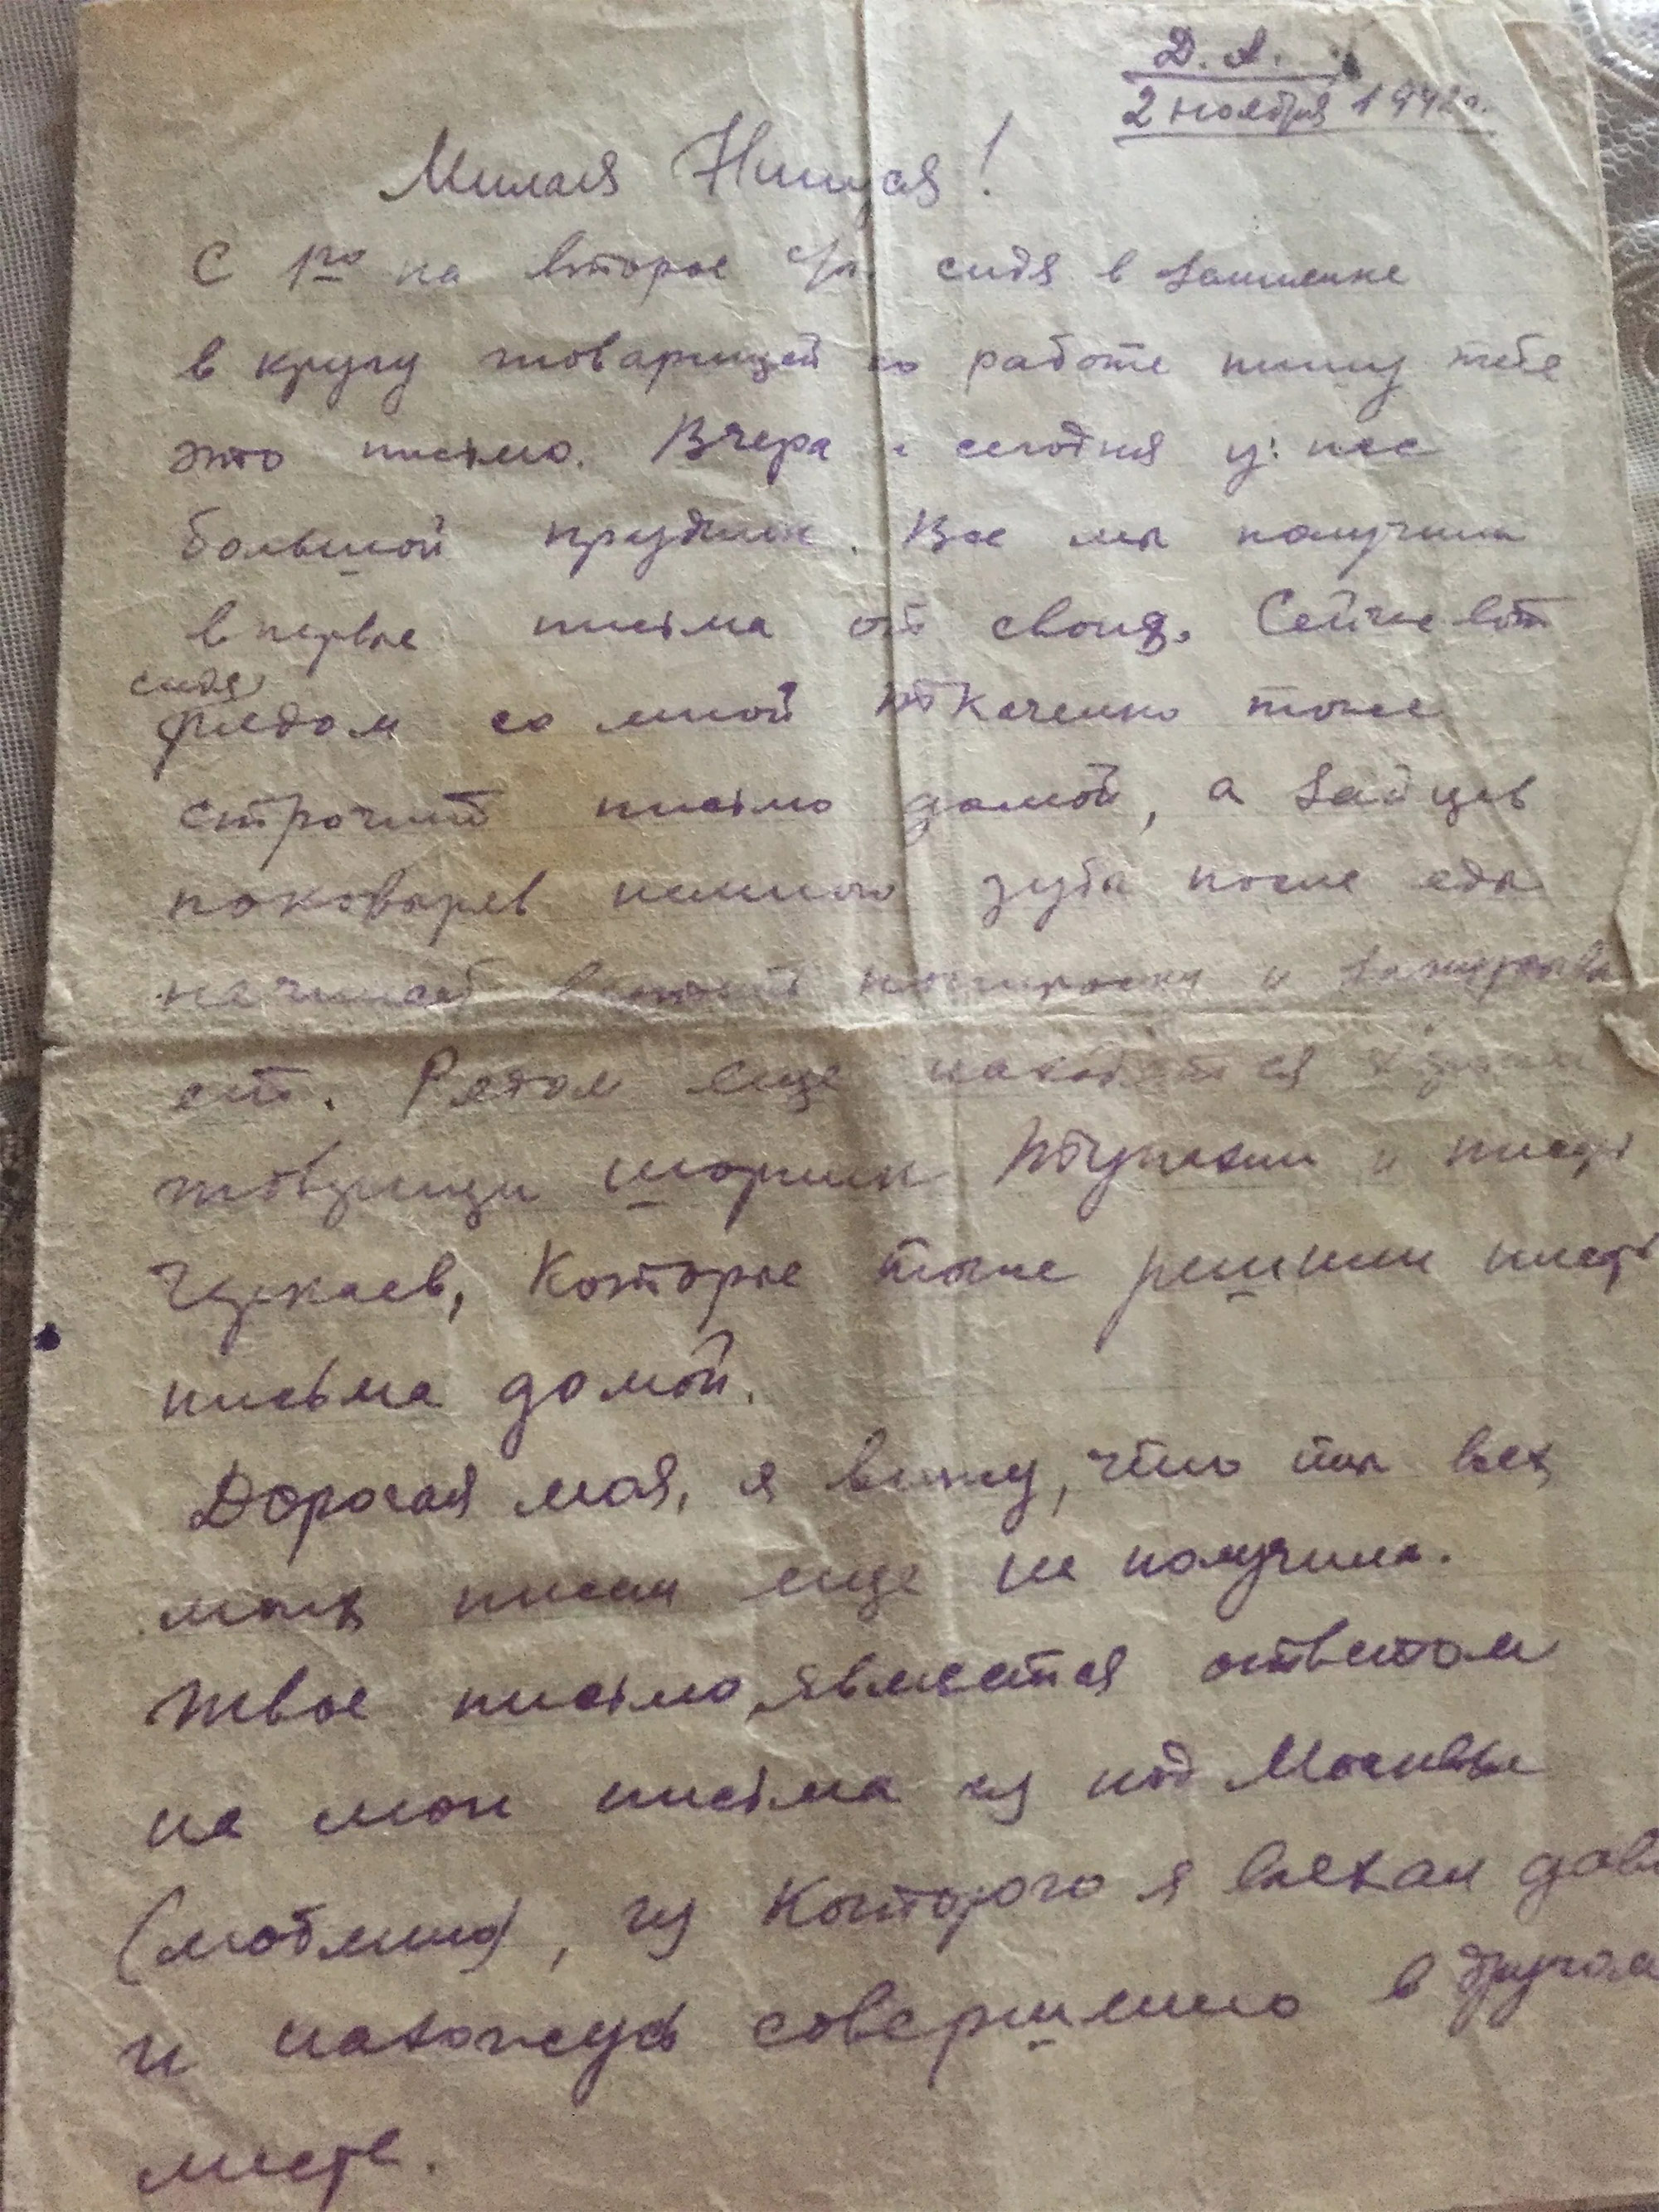 Д. А.
2 ноября 1942 г.
Милая Нинуся!
С 1го на второе сидя в землянке
в кругу товарищей по работе пишу тебе
это письмо. Вчера и сегодня у нас
большой праздник. Все мы получили
впервые письма от своих. Сейчас вот
сидя
рядом со мной Ткаченко тоже
строчит письмо домой, а Зайцев
поковыряв немного зубы после еды
начинает папироски и закурива
ет. Рядом еще находятся
товарищи и
которые тоже решили
письма домой.
Дорогая моя, я вижу, что ты всех
моих писем еще не получила.
Твое письмо является ответом
на мои письма из под Москвы
(Люблино), из которого я выехал
и нахожусь совершенно в другом
месте.